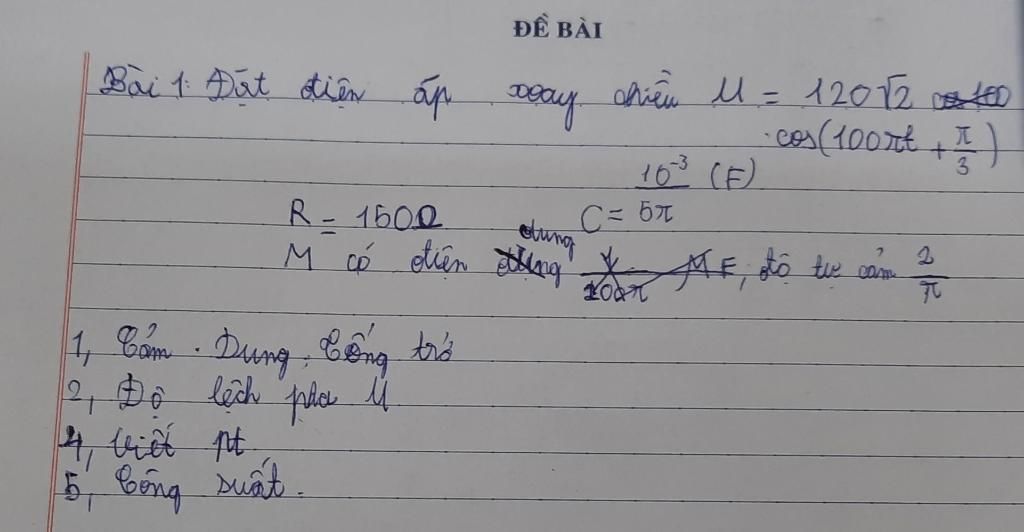 ĐỀ BÀI
Bài 1: Đặt điện áp xoay chiều U = 120√2
.cos(100πt + π/3)
R = 150Ω C = 10^-3/5π (F)
M có điện dung F, độ tự cảm 2/π
1, Cảm . Dung . Tổng trở
2, Độ lệch pha U
4, Viết pt
5, Công suất.